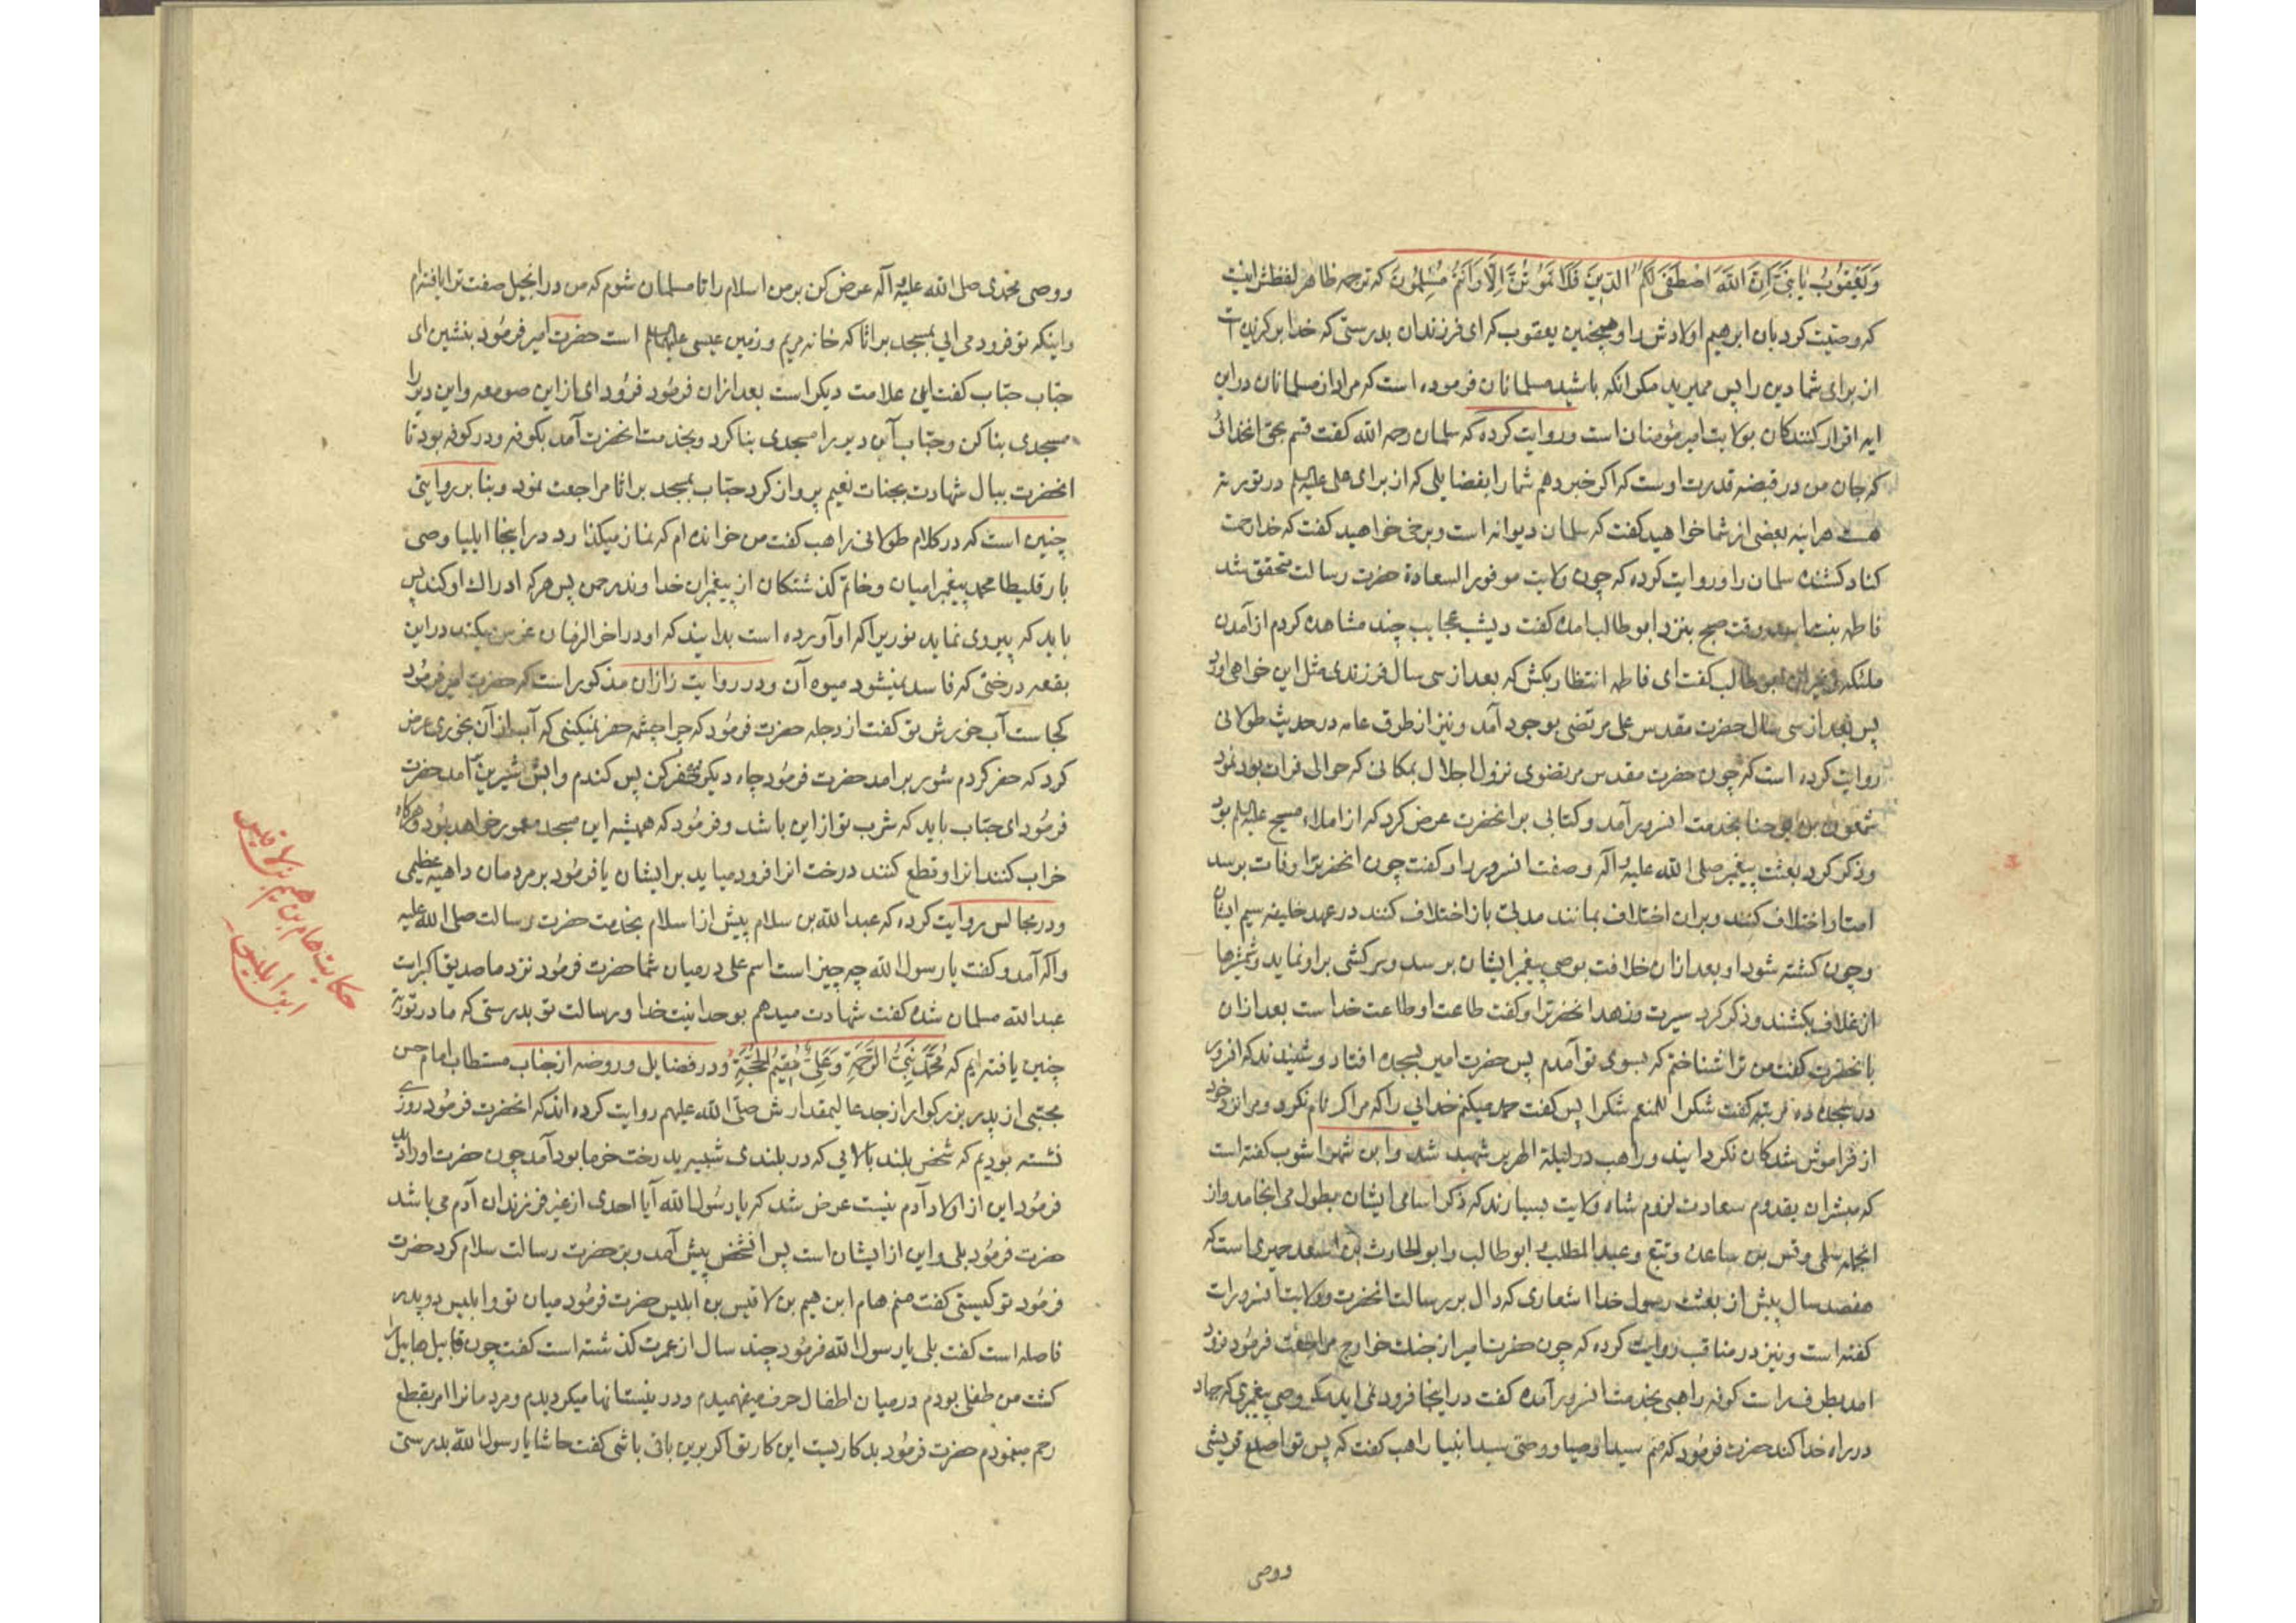 وَيَعْقُوبُ يَا بَنِيَّ اِنَّ اللّٰهَ اصْطَفَى لَكُمُ الدِّينَ فَلَا تَمُوتُنَّ اِلَّا وَاَنْتُمْ مُسْلِمُونَ كه ترجمه ظاهر لفظش اينست
كه وصيت كرد بان ابرهيم اولادش را و همچنين يعقوب كه اى فرزندان بدرستى كه خدا بركزيده است
از براى شما دين را پس مميريد مكر انكه باشيد مسلمانان فرموده است كه مراد از مسلمانان در اين
ايه اقرار كنندكان بولايت امير مؤمنان است و روايت كرده كه سلمان رحمه الله كفت قسم بحق انخدائى
كه جان من در قبضه قدرت اوست كه اكر خبر دهم شما را بفضايلى كه از براى على عليه السلم در توريته
هست هراينه بعضى از شما خواهيد كفت كه سلمان ديوانه است و برخى خواهيد كفت كه خدا رحمت
كناد كشنده سلمان را و روايت كرده كه چون ولايت موفور السعادة حضرت رسالت متحقق شد
فاطمه بنت اسد وقت صبح بنزد ابوطالب امده كفت ديشب عجايب چند مشاهده كردم از آمدن
ملئكه و غيران ابوطالب كفت اى فاطمه انتظار بكش كه بعد از سى سال فرزندى مثل اين خواهى اورد
پس بعد از سى سال حضرت مقدس على مرتضى بوجود آمد و نيز از طرق عامه در حديث طولانى
روايت كرده است كه چون حضرت مقدس مرتضوى نزول اجلال بمكانى كه حوالى فرات بود نمود
شمعون بن يوحنا بخدمت انسرور آمد و كتابى بر انحضرت عرض كرد كه از املاء مسيح عليه السلم بود
و ذكر كرد بعثت پيغمبر صلى الله عليه و آله و صفت انسرور را و كفت چون انحضرترا وفات برسد
امتاو اختلاف كنند و بران اختلاف بمانند مدتى باز اختلاف كنند در عهد خليفه سيم ايشان
و چون كشته شود او بعد ازان خلافت بوصى پيغمبر ايشان برسد و سركشى براو نمايد و شمشيرها
از غلاف بكشند و ذكر كرد سيرت و زهد انحضرترا و كفت طاعت او طاعت خداست بعد ازان
بانحضرت كفت من ترا شناختم كه بسوى تو آمدم پس حضرت امير بسجده افتاد و شنيدند كه انسرور
در سجده ده مرتبه كفت شكرا للمنعم شكرا پس كفت حمد ميكنم خدايى را كه مراكم نام نكرد و مرا نزد خود
از فراموش شدكان نكردانيد و راهب در ليلة الهرير شهيد شد و ابن شهراشوب كفته است
كه مبشران بقدوم سعادت لزوم شاه ولايت بسيارند كه ذكر اسامى ايشان بطول مى انجامد و از
انجمله سلمى و قس بن ساعده و تبع و عبدالمطلب و ابوطالب و ابو الحارث بن اسعد حميرى است كه
هفصد سال پيش از بعثت رسول خدا اشعارى كه دال بر رسالت انحضرت و ولايت انسرورات
كفته است و نيز در مناقب روايت كرده كه چون حضرت امير از جنك خوارج مراجعت فرمود نزد
امد بطرف راست كوفه راهبى بخدمت انسرور آمده كفت در اينجا فرود نمى ايد مكر وصى پيغمبرى كه جهاد
در راه خدا كند حضرت فرمود كه منم سيد اوصيا و وصى سيد انبيا راهب كفت كه پس تو اصلع قريشى
ووصى
ووصى محمدى صلى الله عليه و آله عرض كن بر من اسلام را تا مسلمان شوم كه من در انجيل صفت ترا يافته ام
و اينكه تو فرود مى ايى بمسجد براثا كه خانه مريم و زمين عيسى عليه السلم است حضرت امير فرمود بنشين اى
حبّاب حبّاب كفت اين علامت ديكر است بعد ازان فرمود فرود اى از اين صومعه و اين دير را
مسجدى بنا كن و حبّاب آن دير را مسجدى بنا كرد و بخدمت انحضرت آمد بكوفه و در كوفه بود تا
انحضرت ببال شهادت بجنات نعيم پرواز كرد حبّاب بمسجد براثا مراجعت نمود و بنابر روايتى
چنين است كه در كلام طولانى راهب كفت من خوانده ام كه نماز ميكذارد در اينجا ايليا وصى
بارقليطا محمد پيغمبر اميان و خاتم كذشتكان از پيغمبران خداوند رحمن پس هركه ادراك او كند پس
بايد كه پيروى نمايد نوريرا كه او آورده است بدانيد كه او در اخر الزمان غرس ميكند در اين
بقعه درختى كه فاسد نميشود ميوه آن و در روايت زاذان مذكور است كه حضرت امير فرمود
كجاست آب خورش تو كفت از دجله حضرت فرمود كه چرا چشمه حفر نميكنى كه آب از آن بخورى عرض
كرد كه حفر كردم شور بر امد حضرت فرمود چاه ديكر حفر كن پس كندم و ابش شيرين آمد حضرت
فرمود اى حبّاب بايد كه شرب تو از اين باشد و فرمود كه هميشه اين مسجد معمور خواهد بود و هركاه
خراب كنند انرا و قطع كنند درخت انرا فرود ميايد بر ايشان يا فرمود بر مردمان داهيه عظيمى
و در مجالس روايت كرده كه عبدالله بن سلام پيش از اسلام بخدمت حضرت رسالت صلى الله عليه
و آله آمد و كفت يا رسول الله چه چيز است اسم على در ميان شما حضرت فرمود نزد ما صديق اكبر است
عبدالله مسلمان شده كفت شهادت ميدهم بوحدانيت خدا و رسالت تو بدرستى كه ما در توراة
چنين يافته ايم كه مُحَمَّدٌ نَبِىُّ الرَّحْمَةِ وَ عَلِىٌّ مُقِيمُ الْحُجَّةِ و در فضايل و روضه از جناب مستطاب امام حسن
مجتبى از پدر بزركوار از جد عاليمقدارش صلى الله عليهم روايت كرده اند كه انحضرت فرمود روزى
نشسته بوديم كه شخص بلند بالايى كه در بلندى شبيه بدرخت خرما بود آمد چون حضرت او را ديد
فرمود اين از اولاد آدم نيست عرض شد كه يا رسول الله آيا احدى از غير فرزندان آدم مى باشد
حضرت فرمود بلى و اين از ايشان است پس انشخص پيش آمد و بر حضرت رسالت سلام كرد حضرت
فرمود تو كيستى كفت منم هام ابن هيم بن لاقيس بن ابليس حضرت فرمود ميان تو و ابليس دو پدر
فاصله است كفت بلى يا رسول الله فرمود چند سال از عمرت كذشته است كفت چون قابيل هابيل را
كشت من طفلى بودم در ميان اطفال حرف ميفهميدم و در نيستانها ميكرديدم و مردمانرا امر بقطع
رحم مينمودم حضرت فرمود بد كاريست اين كار تو اكر برين باقى باشى كفت حاشا يا رسول الله بدرستى
حكايت هام بن هيم بن لاقيس
ابن ابليس